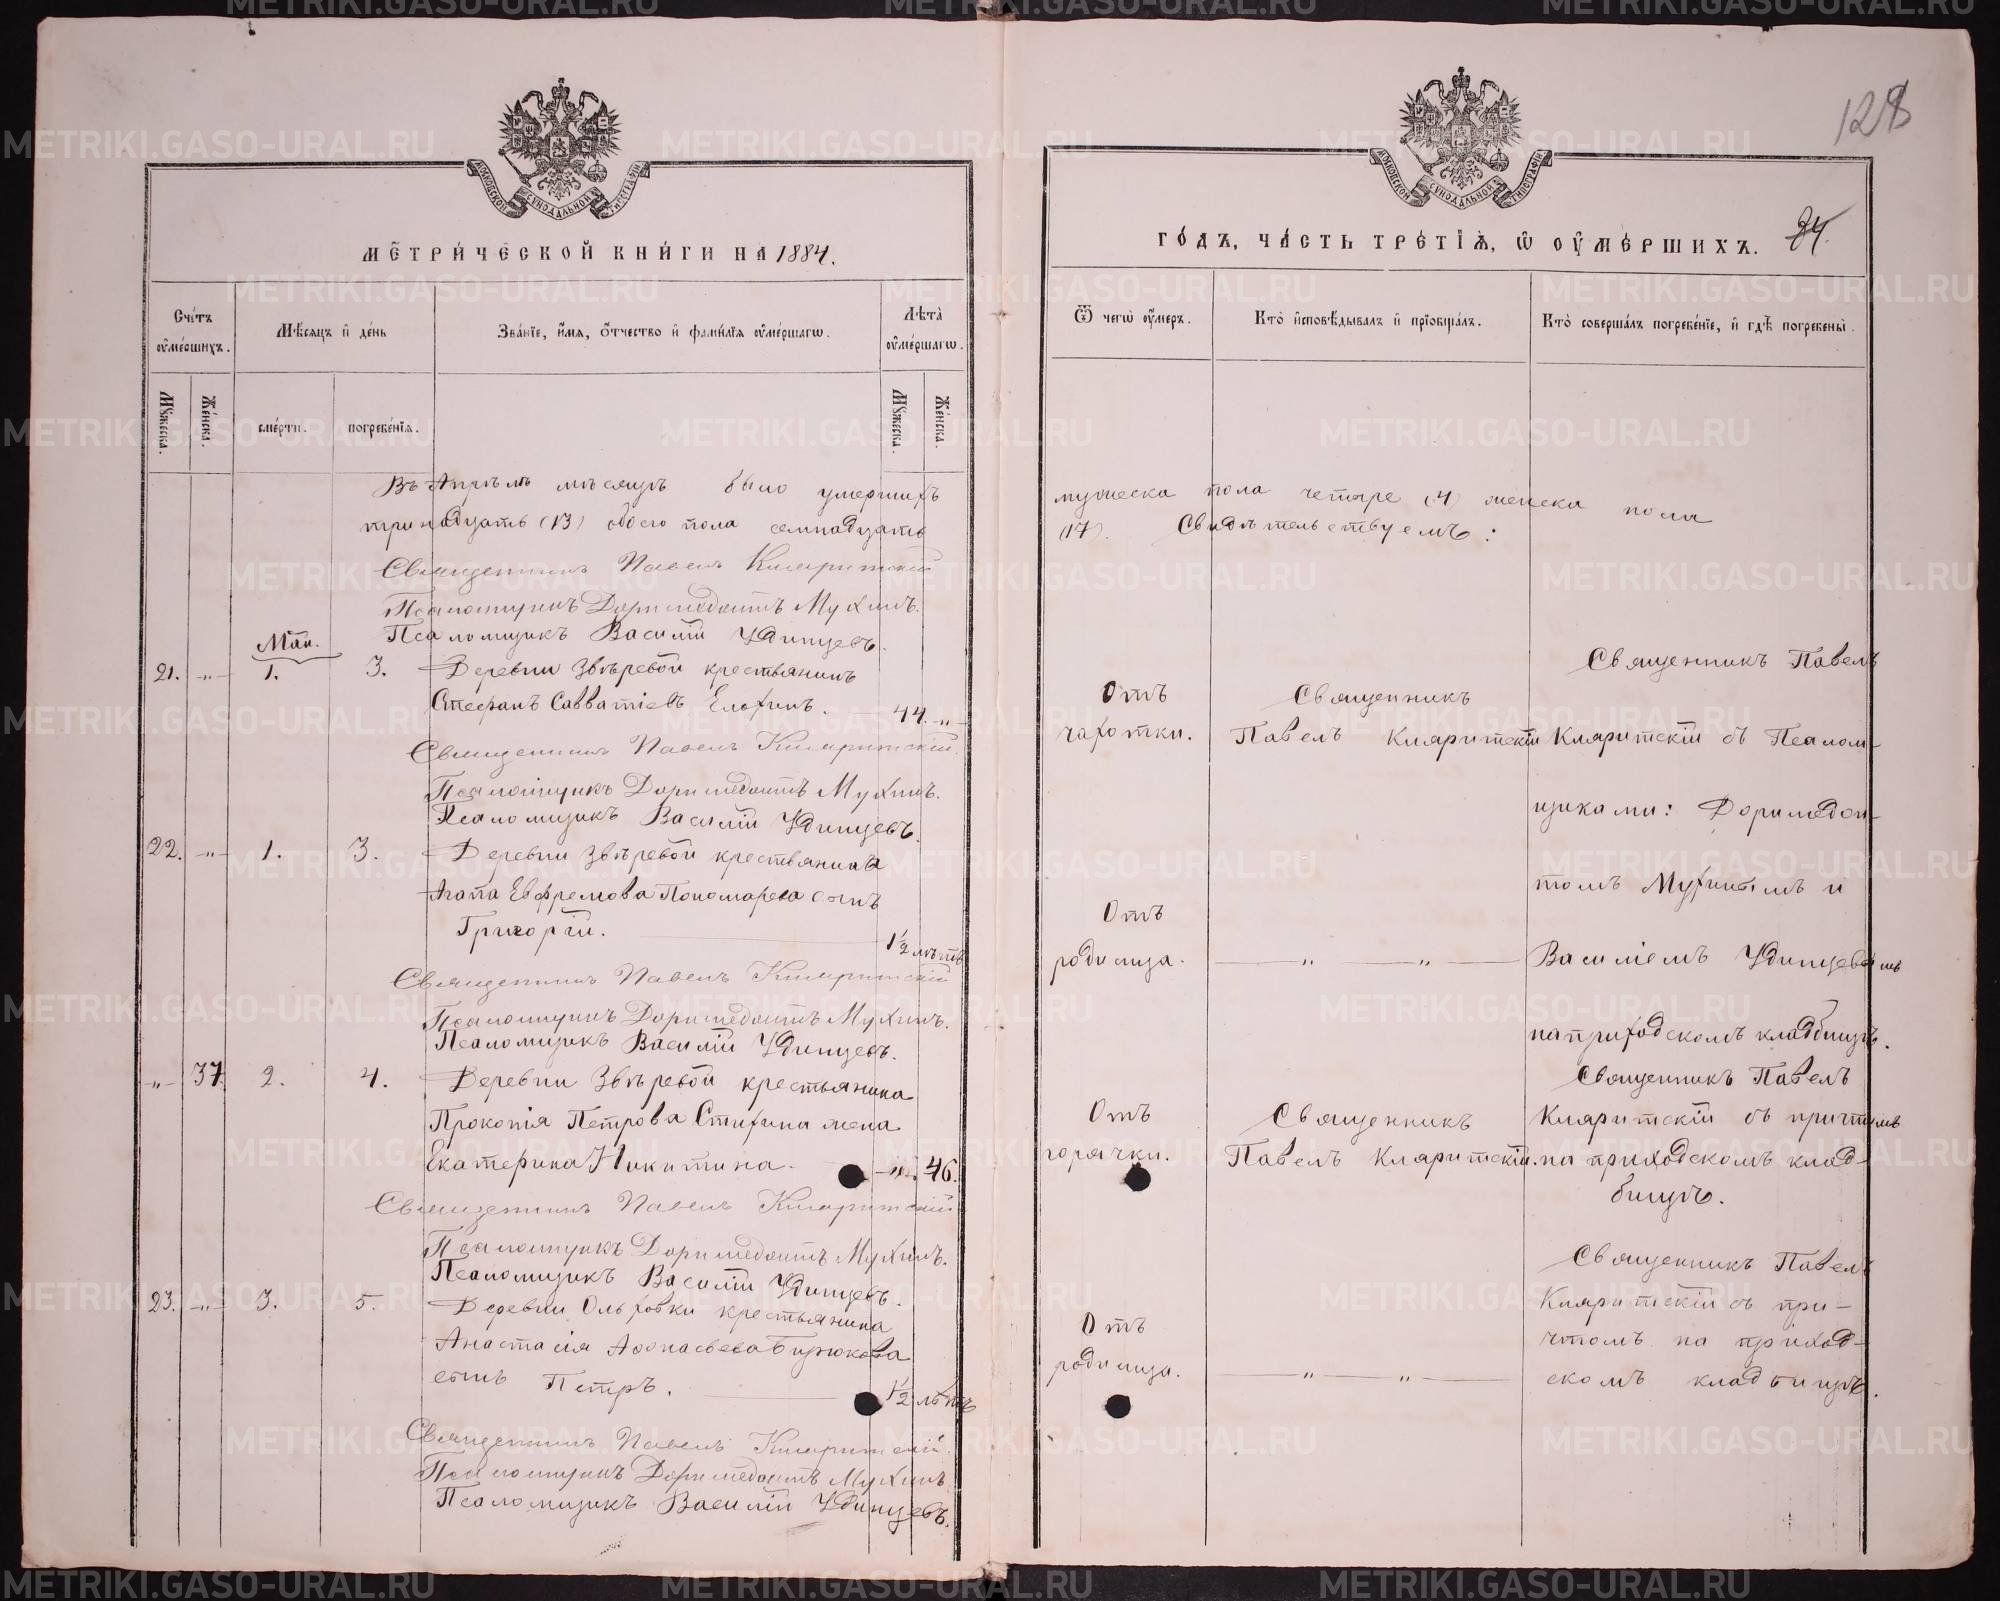 128
МОСКОВСКОЙ СУНОДАЛЬНОЙ ТИПОГРАФІИ
МОСКОВСКОЙ СУНОДАЛЬНОЙ ТИПОГРАФІИ
МЕТРИЧЕСКОЙ КНИГИ НА 1884.
ГОДЪ, ЧАСТЬ ТРЕТІЯ, Ѡ ОУМЕРШИХЪ. 34.
Счетъ оумершихъ.
Мѣсяцъ и день
Званіе, имя, отчество и фамилія оумершагѡ.
Лѣта оумершагѡ.
Ѿ чегѡ оумеръ.
Кто исповѣдывалъ и пріобщалъ.
Кто совершалъ погребеніе, и гдѣ погребены.
Мужеска. Женска. смерти. погребенія. Мужеска. Женска.
Въ Апрѣлѣ мѣсяцѣ было умершихъ мужеска пола четыре (4) женска пола
тринадцать (13) обоего пола семнадцать (17). Свидѣтельствуемъ:
Священникъ Павелъ Кляритскій
Псаломщикъ Доримедонтъ Мухинъ.
Псаломщикъ Василій Удинцевъ.
Май.
21. -„- 1. 3. Деревни Звѣревой крестьянинъ
Стефанъ Савватіевъ Елохинъ. 44. „
Отъ
чахотки.
Священникъ
Павелъ Кляритскій
Священникъ Павелъ
Кляритскій съ Псалом-
щиками: Доримедон-
томъ Мухинымъ и
Василіемъ Удинцевымъ
на приходскомъ кладбищѣ.
Священникъ Павелъ Кляритскій.
Псаломщикъ Доримедонтъ Мухинъ.
Псаломщикъ Василій Удинцевъ.
22. -„- 1. 3. Деревни Звѣревой крестьянина
Агапа Евфремова Пономарева сынъ
Григорій. 1½ лѣтъ
Отъ
родимца.
— „ — „ —
Священникъ Павелъ Кляритскій
Псаломщикъ Доримедонтъ Мухинъ.
Псаломщикъ Василій Удинцевъ.
-„- 37. 2. 4. Деревни Звѣревой крестьянина
Прокопія Петрова Стихина жена
Екатерина Никитина. -„- 46.
Отъ
горячки.
Священникъ
Павелъ Кляритскій.
Священникъ Павелъ
Кляритскій съ причтомъ
на приходскомъ клад-
бищѣ.
Священникъ Павелъ Кляритскій
Псаломщикъ Доримедонтъ Мухинъ.
Псаломщикъ Василій Удинцевъ.
23. -„- 3. 5. Деревни Ольховки крестьянина
Анастасія Афонасьева Бирюкова
сынъ Петръ. ½ лѣтъ
Отъ
родимца.
— „ — „ —
Священникъ Павелъ
Кляритскій съ при-
чтомъ на приход-
скомъ кладбищѣ.
Священникъ Павелъ Кляритскій.
Псаломщикъ Доримедонтъ Мухинъ
Псаломщикъ Василій Удинцевъ.
METRIKI.GASO-URAL.RU